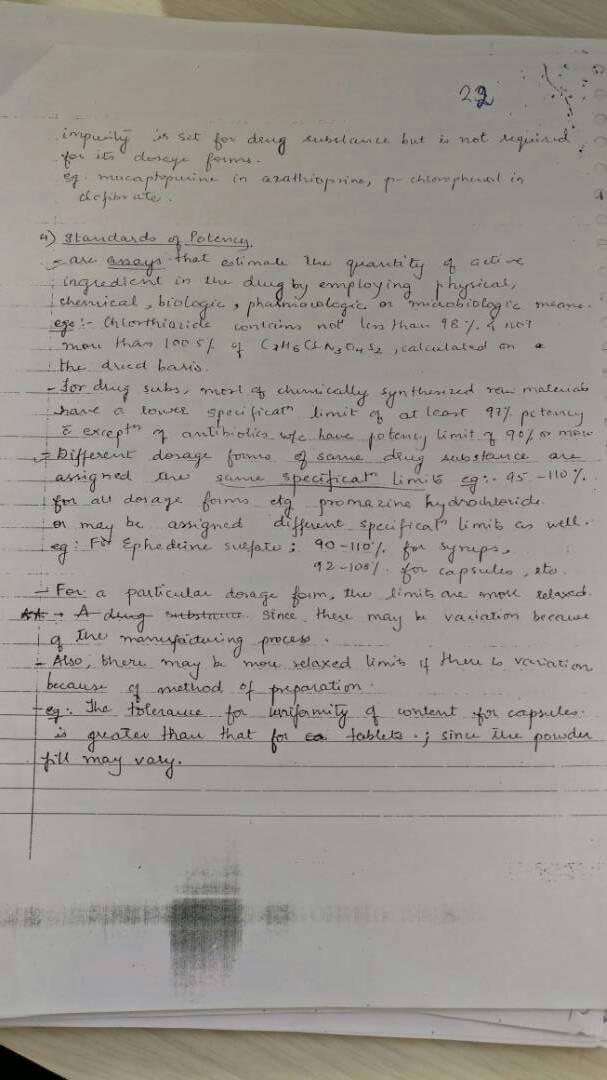 22
impurity is set for drug substance but is not required
for its dosage forms.
eg. mucaptopurine in azathioprine, p-chlorophenol in
clofibrate.
4) Standards of Potency.
- are assays that estimate the quantity of active
ingredient in the drug by employing physical,
chemical, biologic, pharmacologic or microbiologic means.
egs:- Chlorthiazide contains not less than 98% & not
more than 100.5% of C7H6ClN3O4S2, calculated on
the dried basis.
- For drug subs, most of chemically synthesized raw materials
have a lower specificatn limit of at least 97% potency
c̄ exceptn of antibiotics w/c have potency limit of 90% or more
- Different dosage forms of same drug substance are
assigned the same specificatn limits eg:- 95-110%
for all dosage forms of promazine hydrochloride.
or may be assigned different specificatn limits as well.
eg: For Ephedrine sulfate; 90-110% for syrups,
92-108% for capsules, etc.
- For a particular dosage form, the limits are more relaxed.
A drug substance since there may be variation because
of the manufacturing process.
- Also, there may be more relaxed limits if there is variation
because of method of preparation.
- eg:. The tolerance for uniformity of content for capsules
is greater than that for tablets.; since the powder
fill may vary.